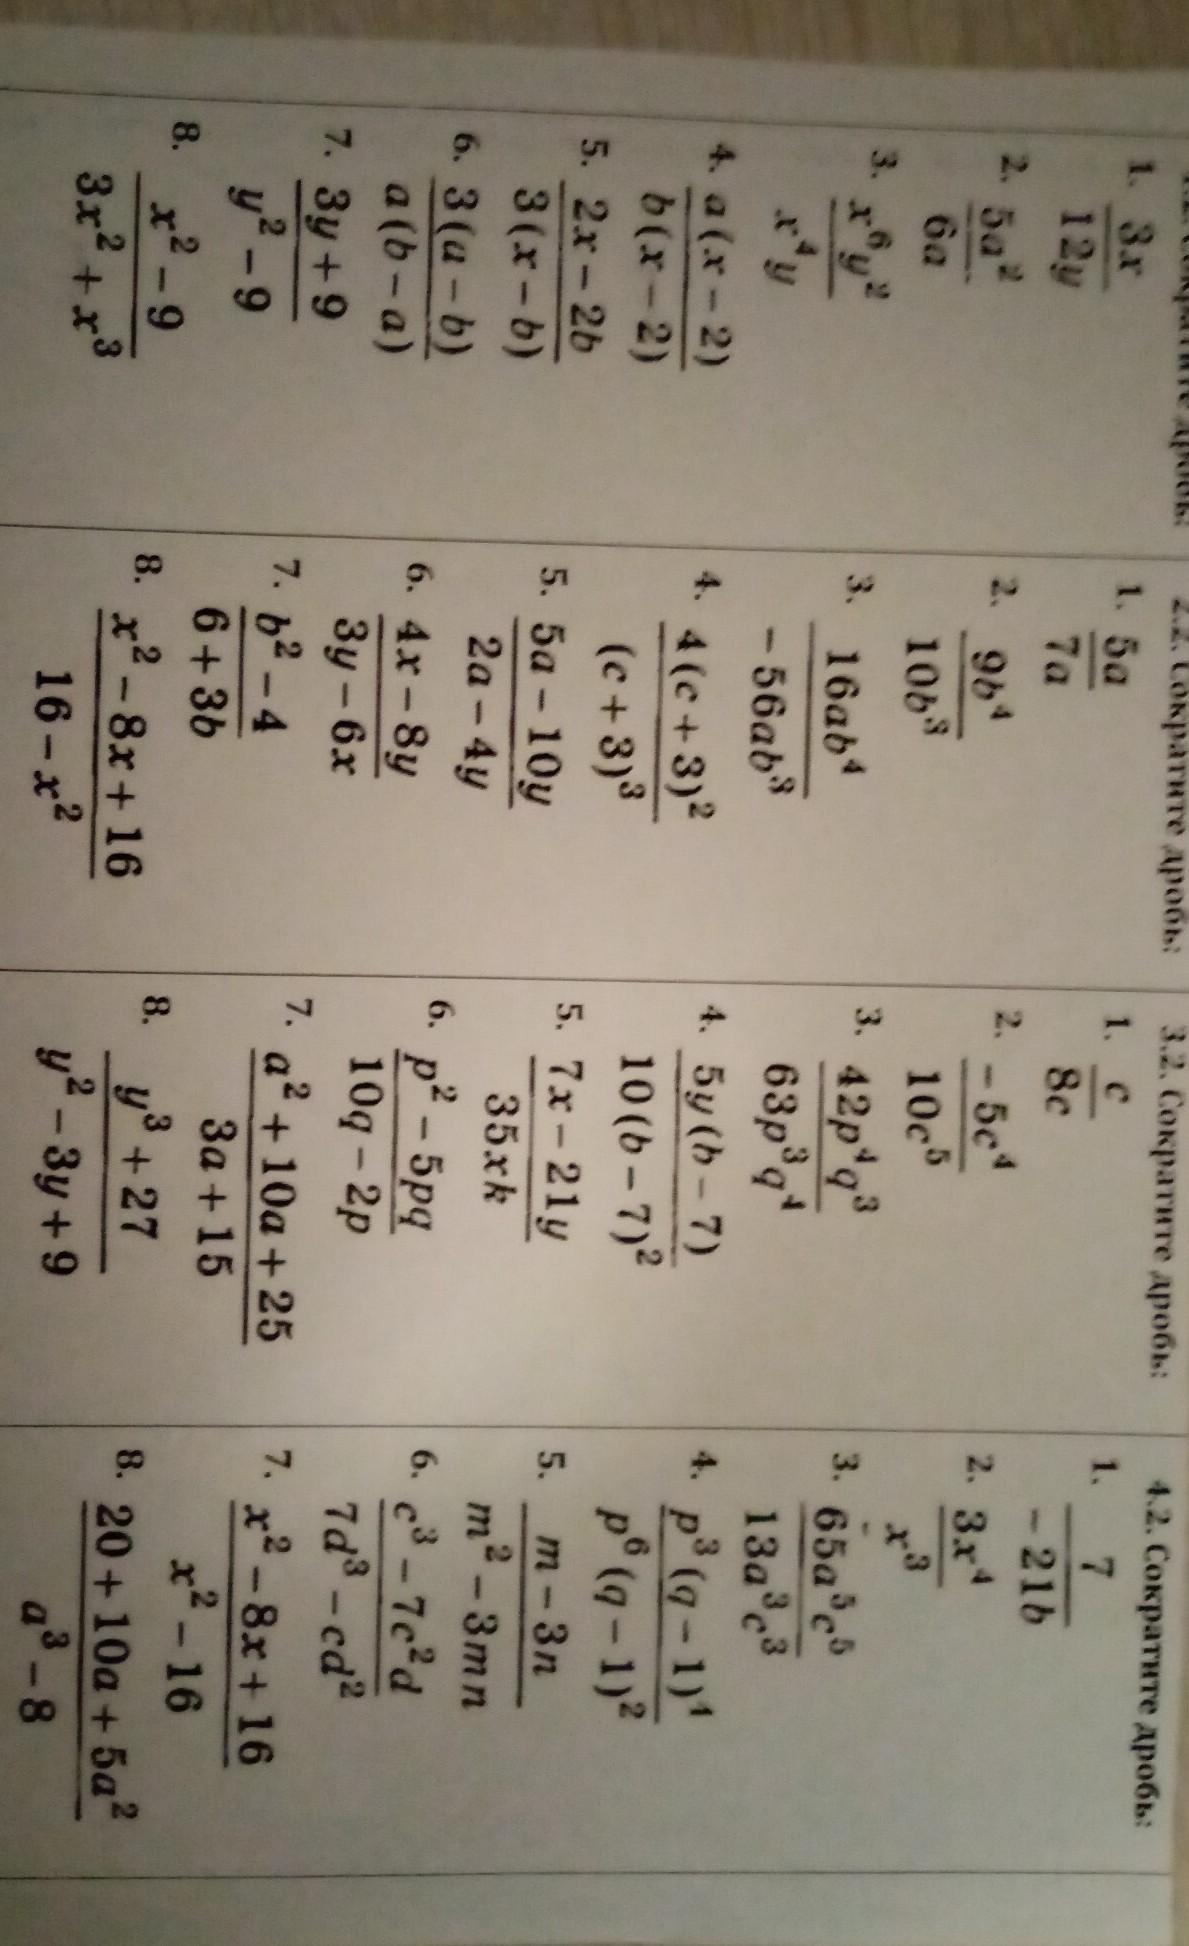 Сократите дробь:
1. 3x / 12y
2. 5a² / 6a
3. x⁶y² / x⁴y
4. a(x − 2) / b(x − 2)
5. 2x − 2b / 3(x − b)
6. 3(a − b) / a(b − a)
7. 3y + 9 / y² − 9
8. x² − 9 / 3x² + x³
2.2. Сократите дробь:
1. 5a / 7a
2. 9b⁴ / 10b³
3. 16ab⁴ / −56ab³
4. 4(c + 3)² / (c + 3)³
5. 5a − 10y / 2a − 4y
6. 4x − 8y / 3y − 6x
7. b² − 4 / 6 + 3b
8. x² − 8x + 16 / 16 − x²
3.2. Сократите дробь:
1. c / 8c
2. −5c⁴ / 10c⁵
3. 42p⁴q³ / 63p³q⁴
4. 5y(b − 7) / 10(b − 7)²
5. 7x − 21y / 35xk
6. p² − 5pq / 10q − 2p
7. a² + 10a + 25 / 3a + 15
8. y³ + 27 / y² − 3y + 9
4.2. Сократите дробь:
1. 7 / −21b
2. 3x⁴ / x³
3. 65a⁵c⁵ / 13a³c³
4. p³(q − 1)⁴ / p⁶(q − 1)²
5. m − 3n / m² − 3mn
6. c³ − 7c²d / 7d³ − cd²
7. x² − 8x + 16 / x² − 16
8. 20 + 10a + 5a² / a³ − 8